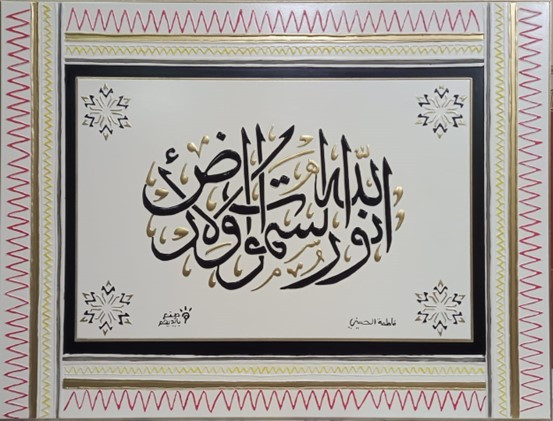 الله نور السموات والأرض
صنع باليد
فاطمة الحسيني